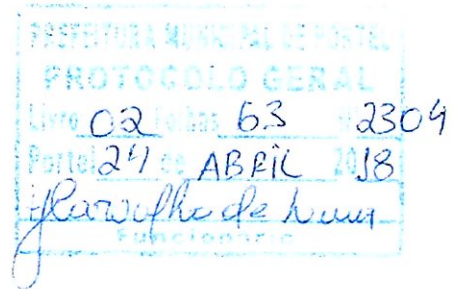 PREFEITURA MUNICIPAL DE PORTEL
PROTOCOLO GERAL
Livro 02 Folhas 63 2304
Portel 24 de ABRIL 2018
Carvalho de
Funcionário